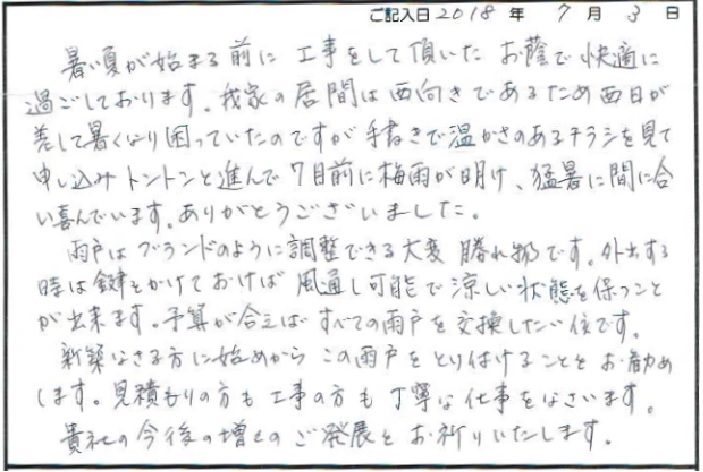 ご記入日 2018 年 7 月 3 日
暑い夏が始まる前に 工事をして頂いた お蔭で快適に
過ごしております。我家の居間は西向きであるため西日が
差して暑くなり困っていたのですが手書きで温かさのあるチラシを見て
申し込みトントンと進んで7月前に梅雨が明け、猛暑に間に合
い喜んでいます。ありがとうございました。
雨戸はブランドのように調整できる大変 勝れ物です。外出する
時は鍵をかけておけば 風通し可能で涼しい状態を保つこと
が出来ます。予算が合えばすべての雨戸を交換したい位です。
新築なさる方に始めから この雨戸をとり付けることをお勧め
します。見積もりの方も工事の方も丁寧な仕事をなさいます。
貴社の今後の増々のご発展をお祈りいたします。